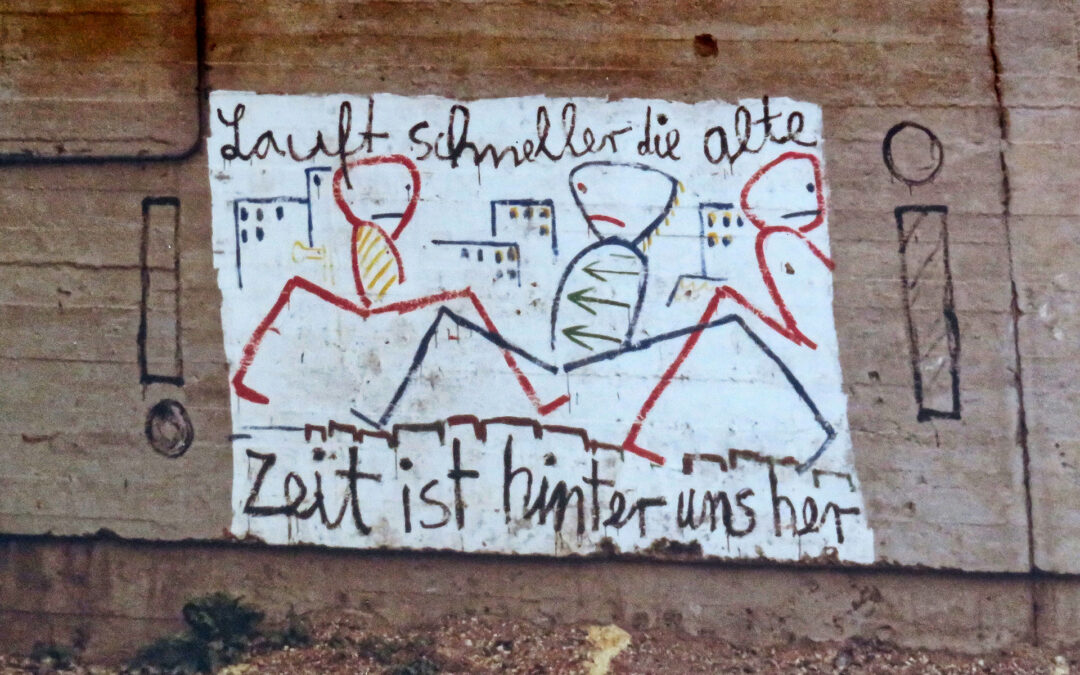 Lauft schneller die alte
Zeit ist hinter uns her